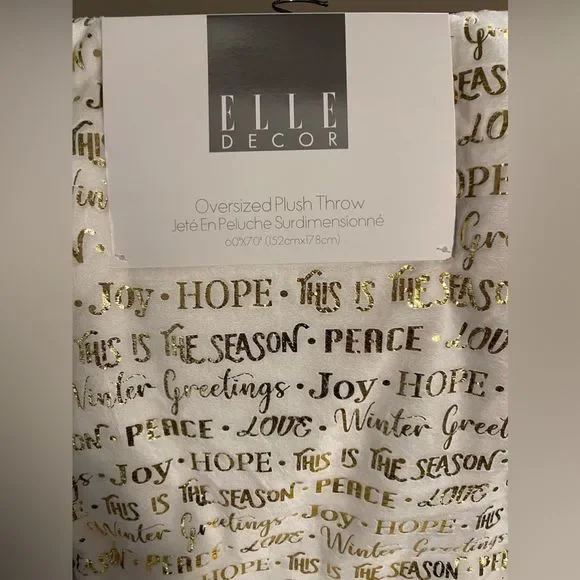 ELLE
DECOR
Oversized Plush Throw
Jeté En Peluche Surdimensionné
60"X70" (152cmx178cm)
Gr
J SEASON
THI LO
Win OPE
Gre
· Joy · HOPE · THIS IS THE SEASO
THIS IS THE SEASON · PEACE · LOV
Winter Greetings · Joy · HOPE ·
PEACE · LOVE · Winter Greet
SON · Joy · HOPE · THIS IS THE SEASON ·
· THIS IS THE SEASON · PEACE · LOVE ·
Winter Greetings · Joy · HOPE · THIS
SEASON · PEACE · LOVE · Winter Greetings
HOPE · THIS IS THE SEASON · PE